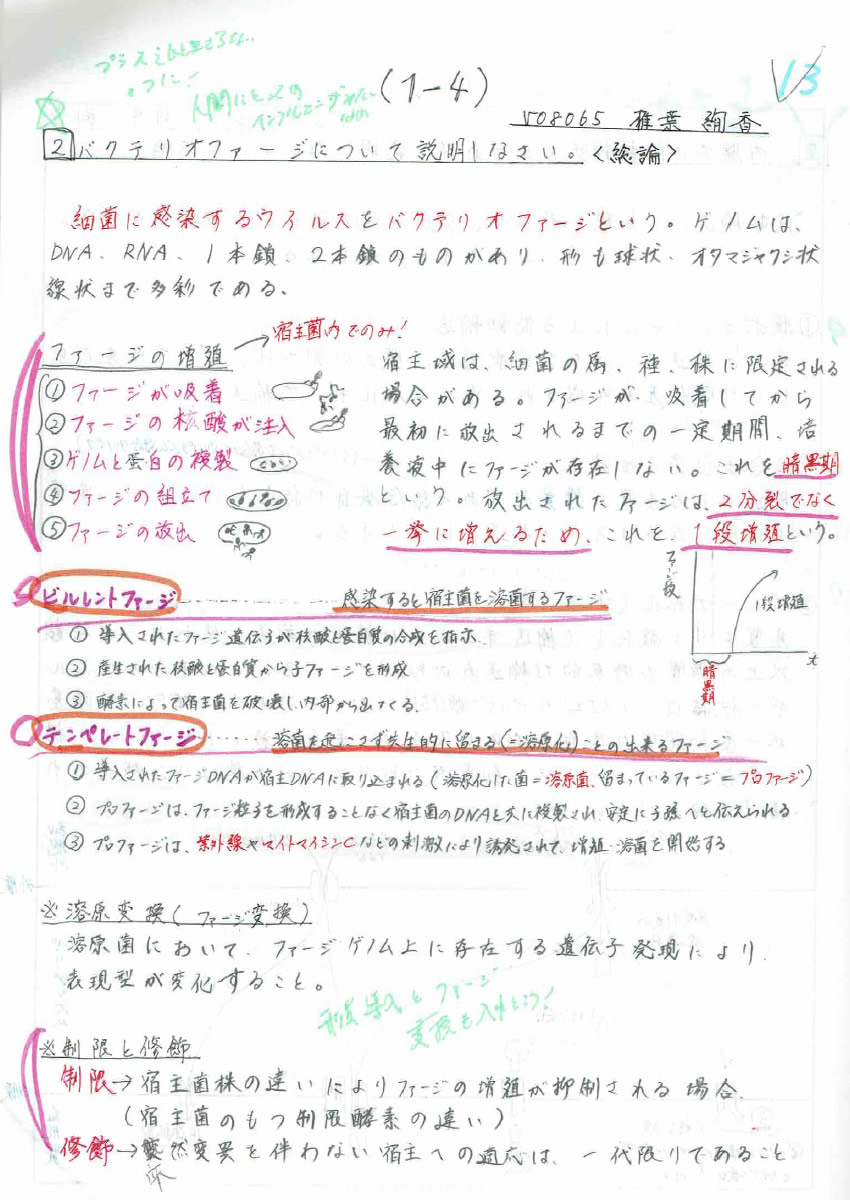 (1-4)
13
V08065 雅葉 絢香
2 バクテリオファージについて説明しなさい。<総論>
人間にとっての
細菌に感染するウイルスをバクテリオファージという。ゲノムは、
DNA、RNA、1本鎖、2本鎖のものがあり、形も球状、オタマジャクシ状
線状まで多彩である。
ファージの増殖 → 宿主菌内でのみ!
① ファージが吸着
② ファージの核酸が注入
③ ゲノムと蛋白の複製
④ ファージの組立て
⑤ ファージの放出
宿主域は、細菌の属、種、株に限定される
場合がある。ファージが、吸着してから
最初に放出されるまでの一定期間、培
養液中にファージが存在しない。これを暗黒期
という。放出されたファージは、2分裂でなく
一挙に増えるため、これを、1段増殖という。
ファージ数
1段増殖
t
暗黒期
ビルレントファージ……感染すると宿主菌を溶菌するファージ
① 導入されたファージ遺伝子が核酸と蛋白質の合成を指示。
② 産生された核酸と蛋白質から子ファージを形成
③ 酵素によって宿主菌を破壊し内部から出てくる。
テンペレートファージ……溶菌を起こさず共生的に留まる(=溶原化)ことの出来るファージ
① 導入されたファージDNAが宿主DNAに取り込まれる(溶原化した菌=溶原菌、留まっているファージ=プロファージ)
② プロファージは、ファージ粒子を形成することなく宿主菌のDNAと共に複製され、安定に子孫へと伝えられる
③ プロファージは、紫外線やマイトマイシンCなどの刺激により誘発されて、増殖・溶菌を開始する
※溶原変換(ファージ変換)
溶原菌において、ファージゲノム上に存在する遺伝子発現により、
表現型が変化すること。
形質導入とファージ
変換も入れという!
※制限と修飾
制限→宿主菌株の違いによりファージの増殖が抑制される場合。
(宿主菌のもつ制限酵素の違い)
修飾→突然変異を伴わない宿主への適応は、一代限りであること